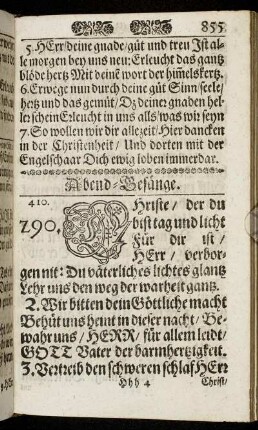 855.
5. HErr/ deine gnade/ güt und treu Ist al-
le morgen bey uns neu; Erleucht das gantz
blöde hertz Mit deinẽ wort der him̃elskertz.
6. Erwege nun durch deine güt Sinn/ seele/
hertz und das gemüt/ Dz deine gnaden hel-
ler schein Erleucht in uns alls was wir seyn
7. So wollen wir dir allezeit/ Hier dancken
in der Christenheit/ Und dorten mit der
Engelschaar Dich ewig loben immerdar.
Abend-Gesänge.
410.
290. CHriste/ der du
bist tag und licht
Für dir ist/
HErr/ verbor-
gen nit: Du väterliches lichtes glantz
Lehr uns den weg der warheit gantz.
2. Wir bitten dein Göttliche macht
Behüt uns heint in dieser nacht/ Be-
wahr uns/ HERR/ für allem leidt/
GOTT Vater der barmhertzigkeit.
3. Vertreib den schweren schlaf HErr
Hhh 4 Christ/